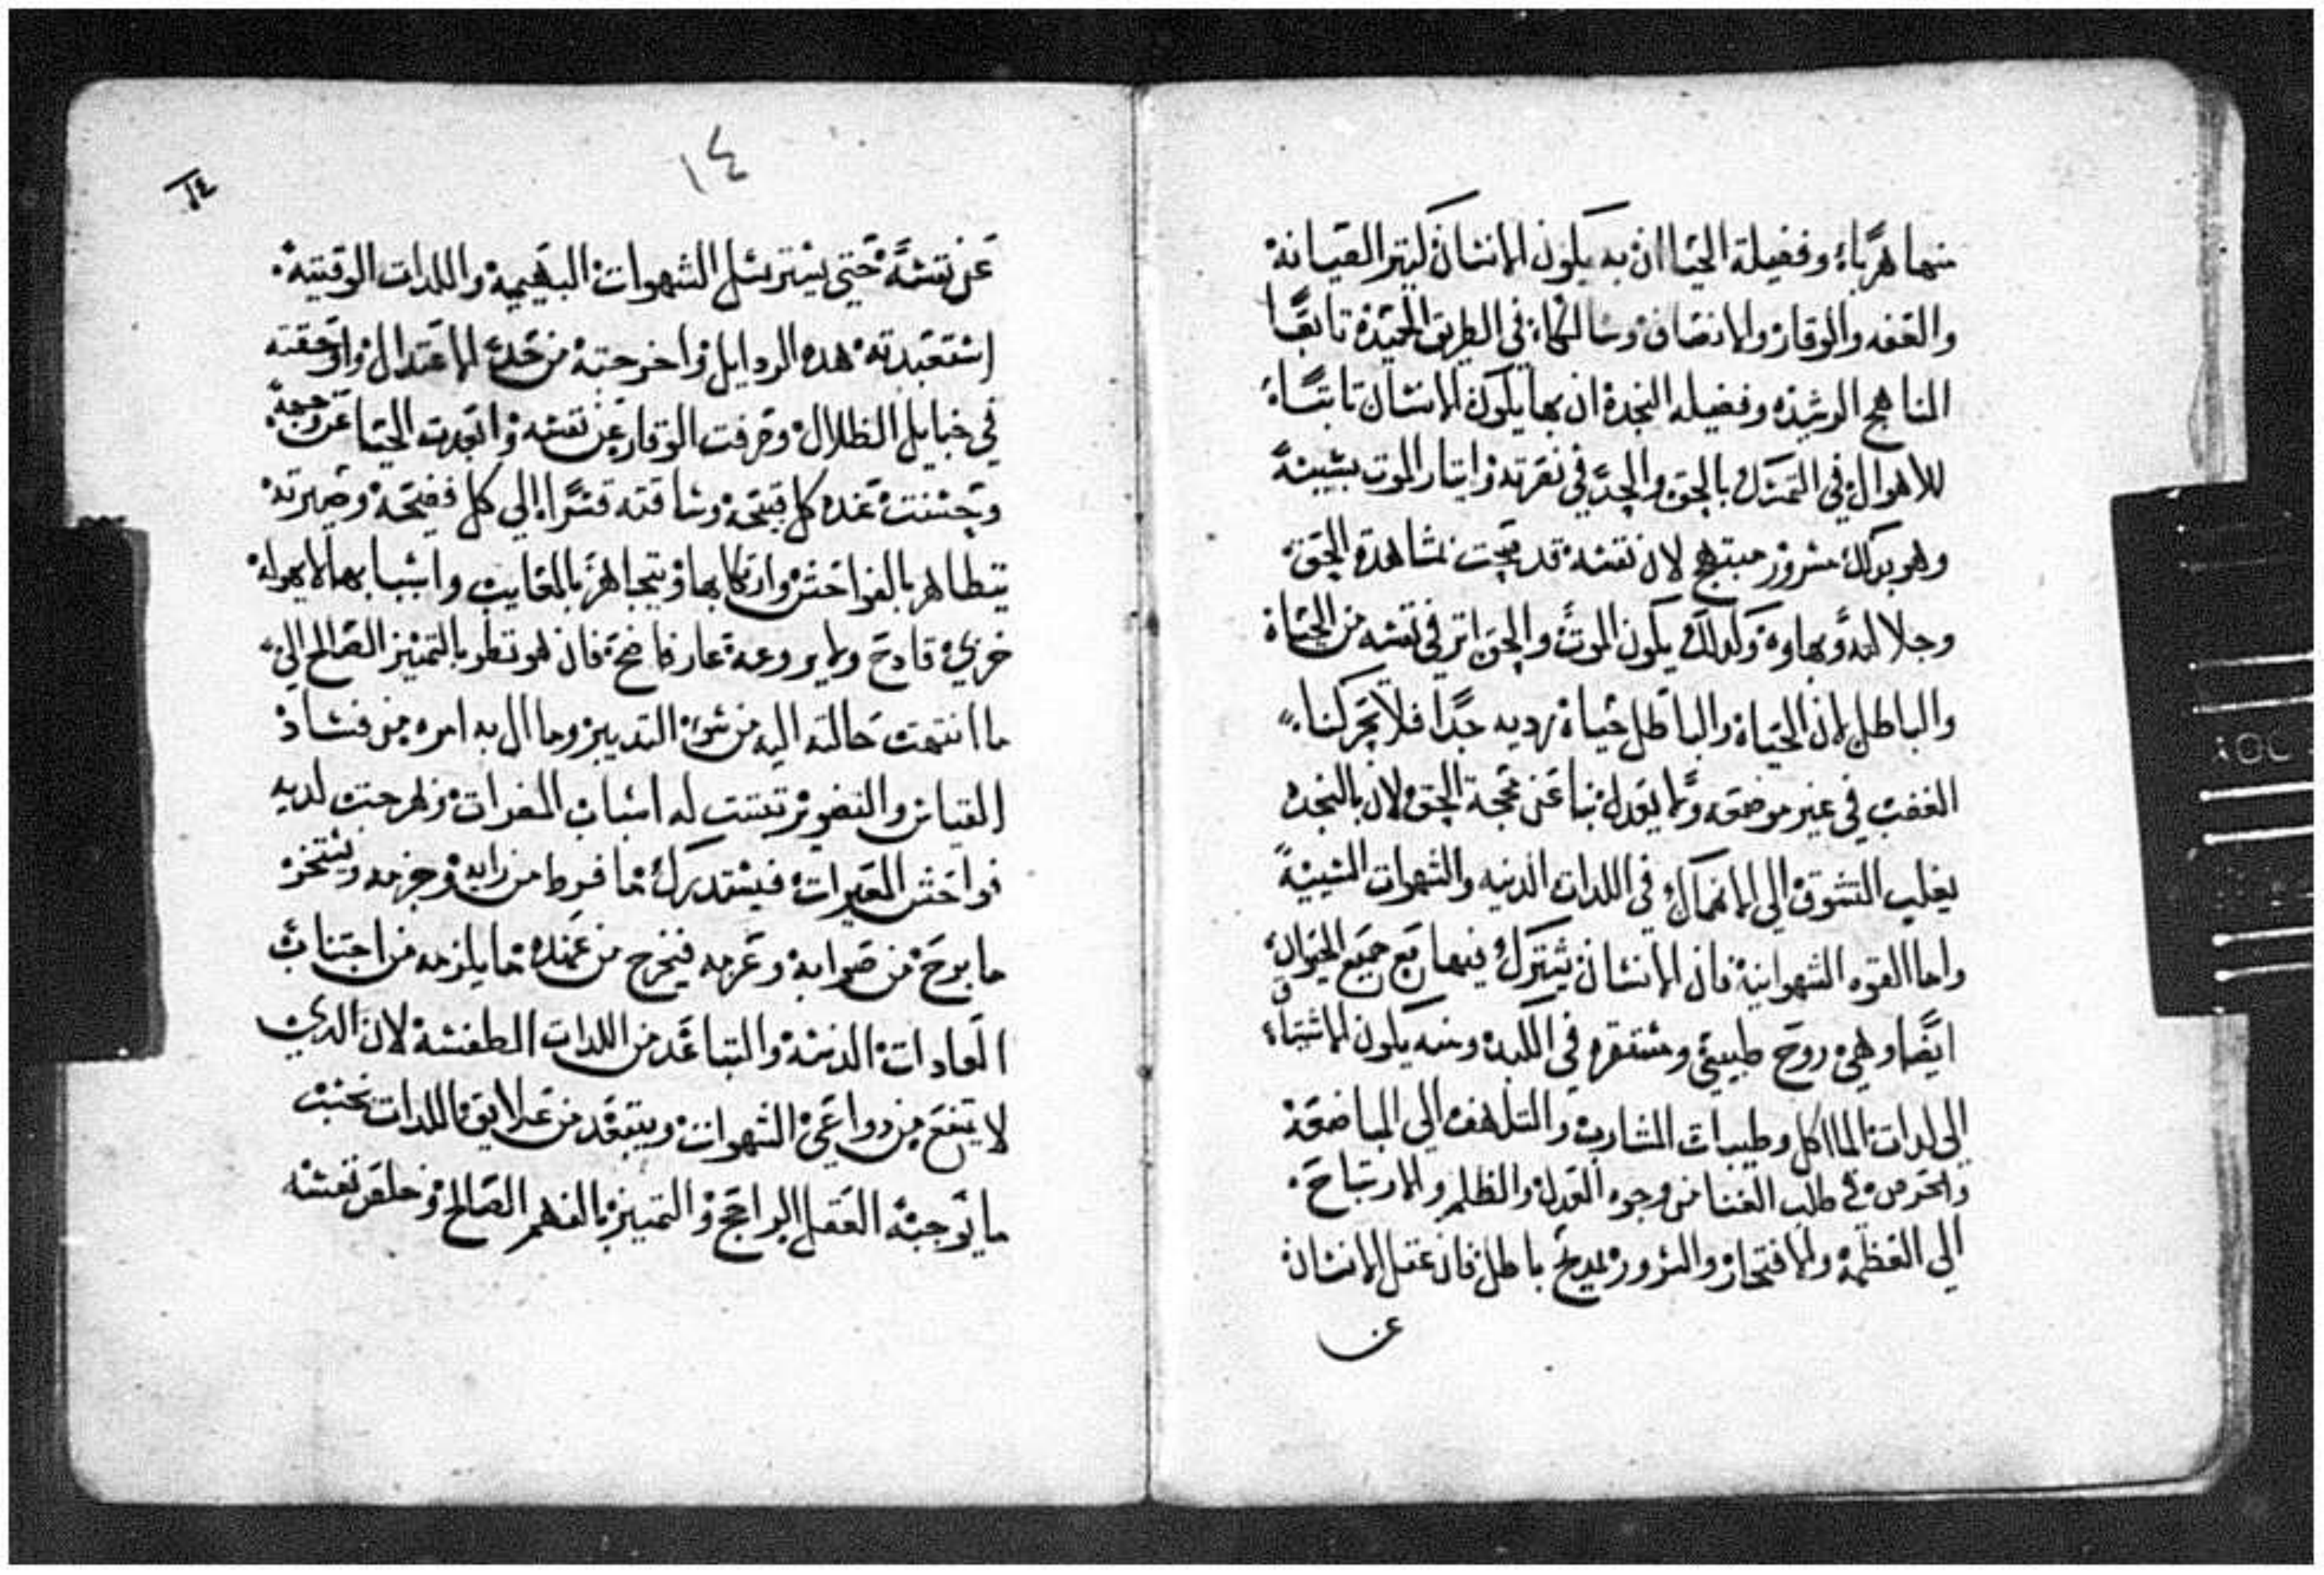 منها هربًا، وفضيلة الحيا ان به يكون الانسان كثير الصيانه
والعفه والوقار والانصاف وسالكًا، في الطريق الحميدة تابعًا
المناهج الرشيده وفضيله النجدة ان بها يكون الانسان تابتًا،
للاهوال في التمسك بالحق والجد في نصرته وايتار الموت بسببه
وهو بدلك مسرور مبتهج لان نفسه قد بمشاهدة الحق
وجلالته وبهاوه ولدلك يكون الموت والحق اتر في نفسه من الحياة
والباطل لان الحياة والباطل حياة رديه جدًا فلا تحركنا.
الغضب في غير موضعه ولا يعدل بنا عن محجة الحق لان بالنجده
يغلب التشوق الى الانهماك في اللدات الدنيه والشهوات المشينة
واما القوه الشهوانية فان الانسان يشترك فيها مع جميع الحيوان
ايضًا وهي روح طبيعي ومستقره في الكبد ومنه يكون الاشتياء
الى لدات الماكل وطيبات المشارب والتلهف الي المباضعة
والحرص في طلب الغنا من وجوه العدل والظلم والارتياح.
الي العظمة والافتخار والسرور بمديح باطل فان عقل الانسان
عن
١٤
١٤
عن نفسه حتي يسترسل الشهوات البهيميه واللدات الوقتيه.
استعبدته هده الردايل واخرجته من حد الاعتدال واوقعته
في حبايل الظلال وصرفت الوقار عن نفسه وابعدت الحيا عن وجهه
وحسنت عنده كل قبيحه وساقته قسرًا الي كل فضيحه وصيرته
يتظاهر بالفواحش وارتكابها ويتجاهر بالمعايب واسبابها لا يهوله
خزي فادح ولا يروعه عار فاضح فان هو نظر بالتمييز الصالح الي
ما انتهت حالته اليه من سو التدبير وما ال به امره من فساد
القياس والتصوير له اسباب المضرات لديه
فواحش المعيرات فيستدرك ما فرط من رايه وحزمه
ما برح من صوابه وعزمه فيخرج من عهدة ما يلزمه من اجتناب
العادات الدنيه والتباعد من اللدات الطفسه لان الدي
لا يتضع من دواعي الشهوات ويتبعد من علايق اللدات بحسب
ما يوجبه العقل الراجح والتمييز بالفهم الصالح وخلص نفسه